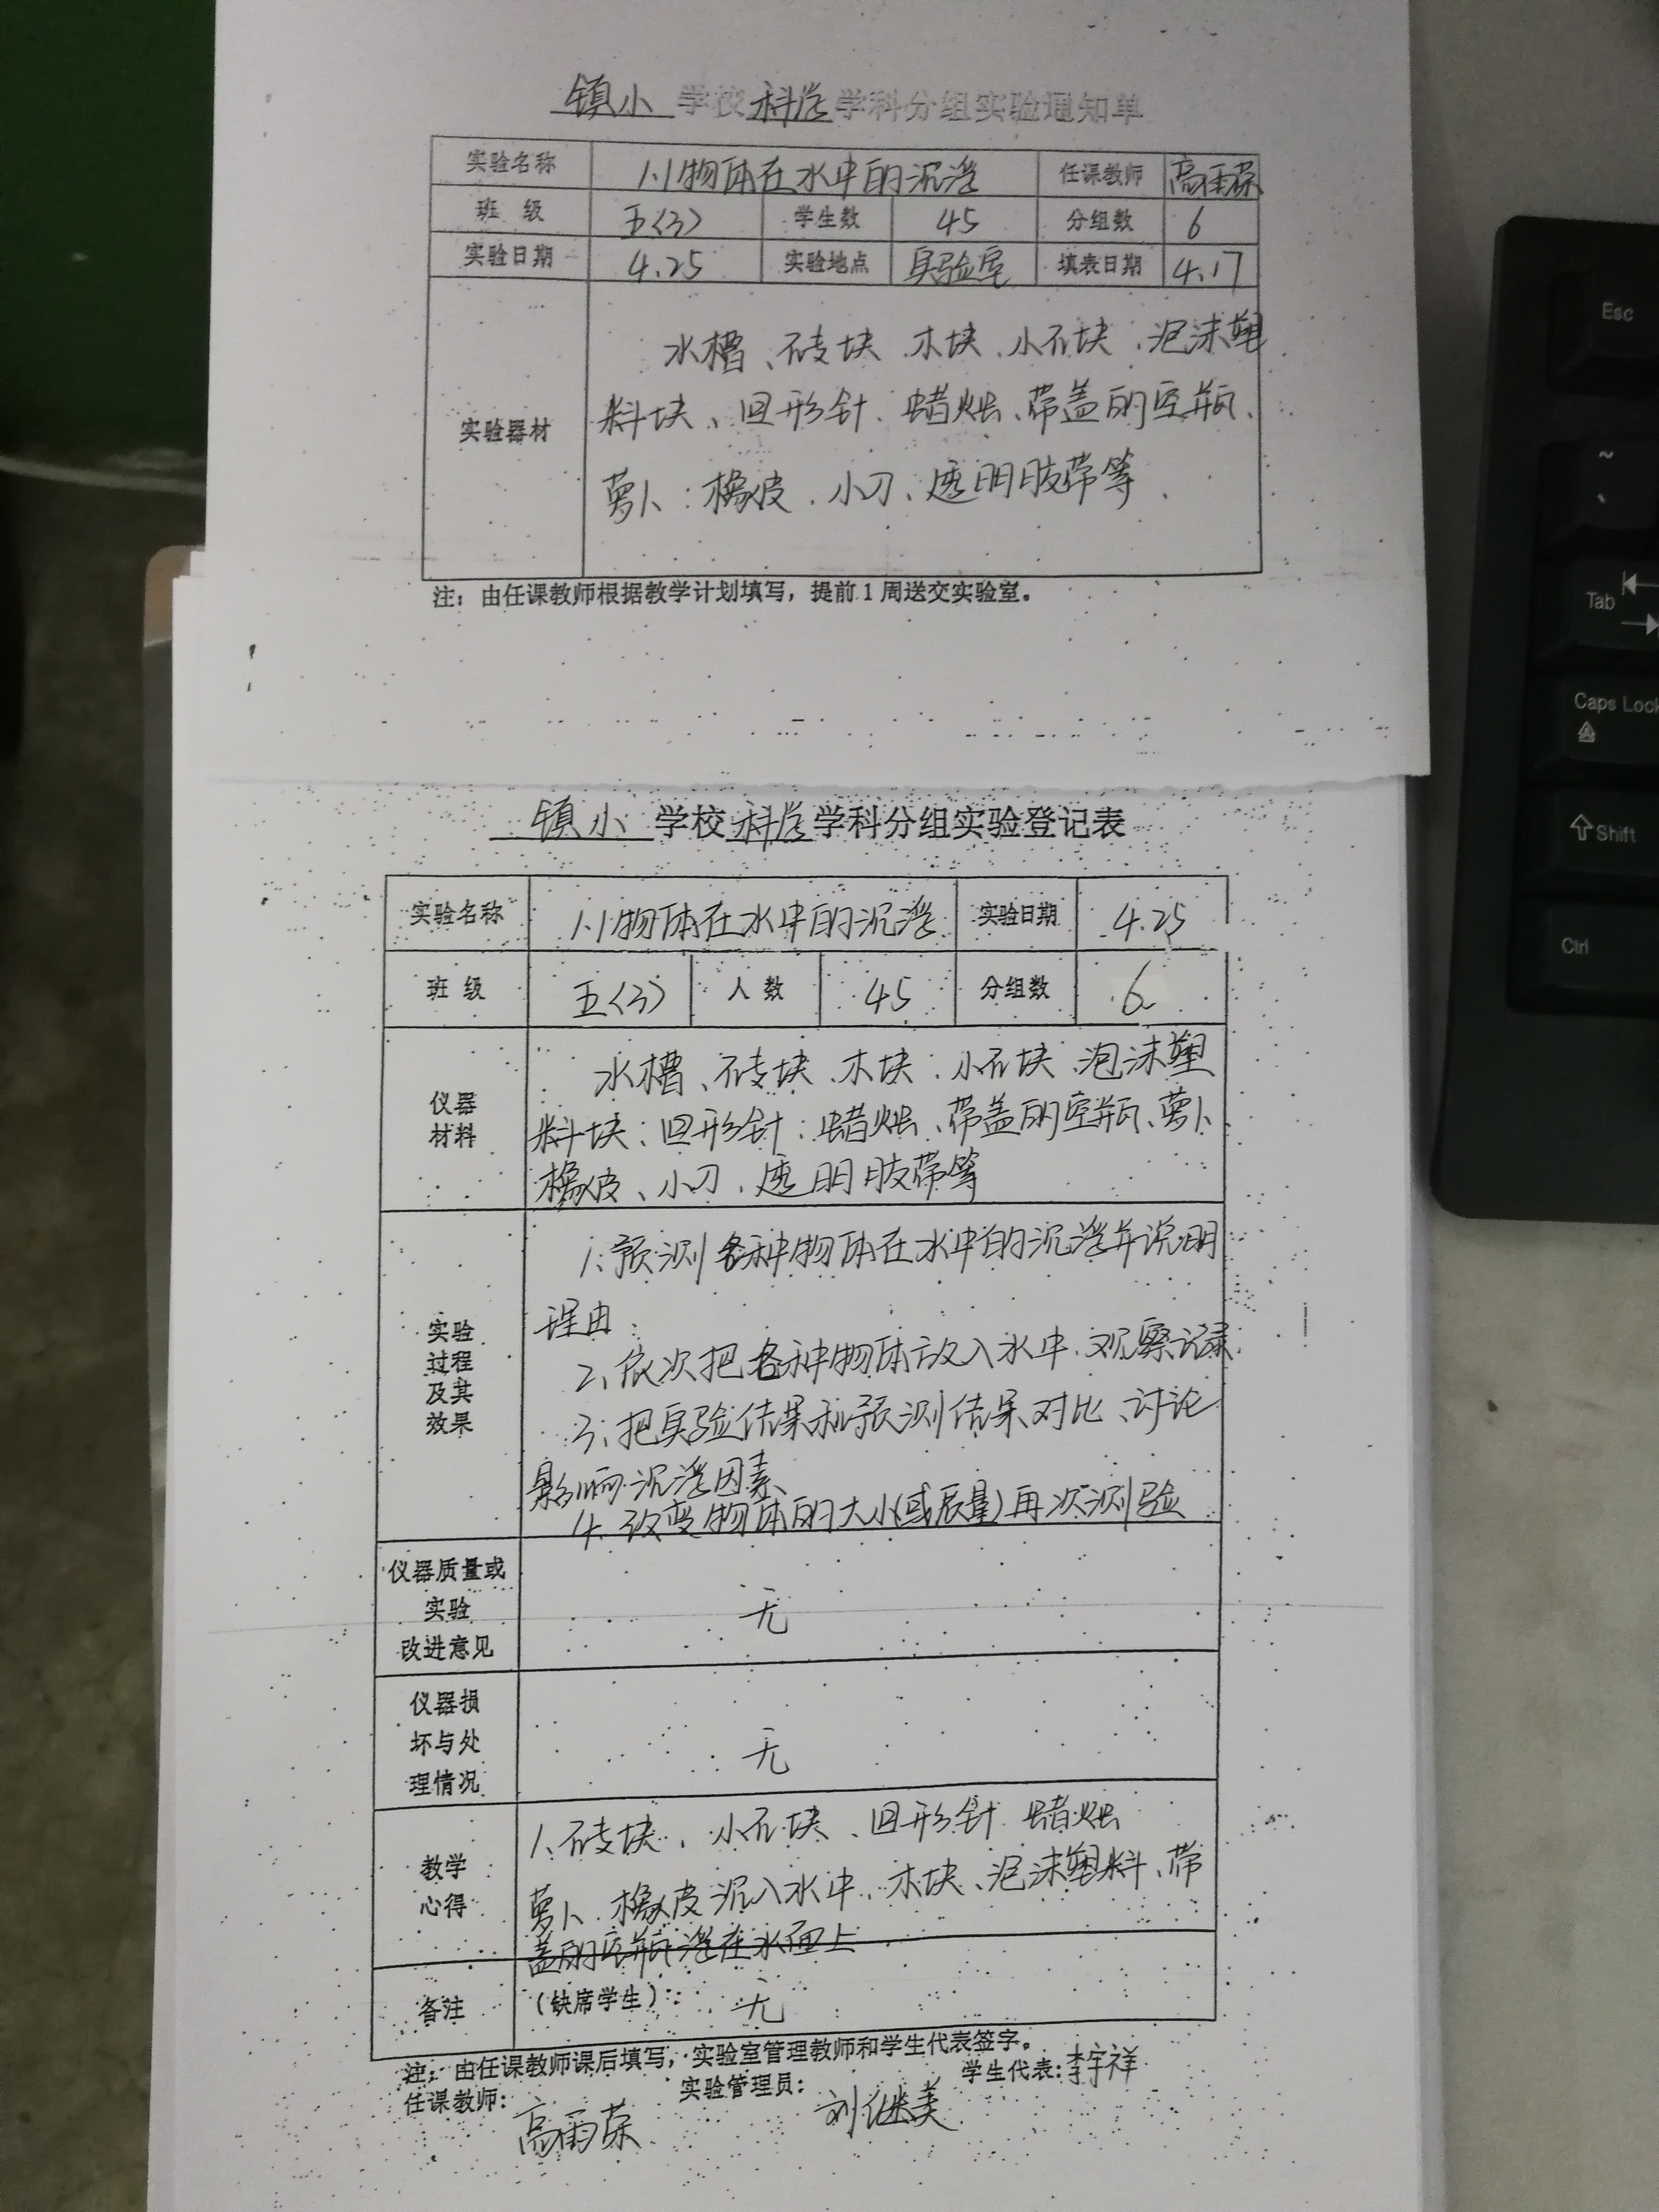 镇小 学校 科学 学科分组实验通知单
实验名称 1.1物体在水中的沉浮 任课教师 高雨荣
班 级 五(3) 学生数 45 分组数 6
实验日期 4.25 实验地点 实验室 填表日期 4.17
实验器材
水槽、砖块、木块、小石块、泡沫塑
料块、回形针、蜡烛、带盖的空瓶、
萝卜、橡皮、小刀、透明胶带等、
注：由任课教师根据教学计划填写，提前1周送交实验室。
镇小 学校 科学 学科分组实验登记表
实验名称 1.1物体在水中的沉浮 实验日期 4.25
班 级 五(3) 人 数 45 分组数 6
仪器
材料
水槽、砖块、木块、小石块、泡沫塑
料块、回形针、蜡烛、带盖的空瓶、萝卜
橡皮、小刀、透明胶带等
实验
过程
及其
效果
1、预测各种物体在水中的沉浮并说明
理由、
2、依次把各种物体放入水中、观察记录
3、把实验结果和预测结果对比、讨论
影响沉浮因素、
4、改变物体的大小(或质量)再次测验
仪器质量或
实验
改进意见
无
仪器损
坏与处
理情况
无
教学
心得
1、砖块、小石块、回形针 蜡烛
萝卜、橡皮沉入水中、木块、泡沫塑料、带
盖的空瓶浮在水面上
备注 （缺席学生）： 无
注：由任课教师课后填写，实验室管理教师和学生代表签字。
任课教师： 高雨荣 实验管理员： 刘继美 学生代表：李宇祥
Esc
~
、
Tab
Caps Lock
A
Shift
Ctrl